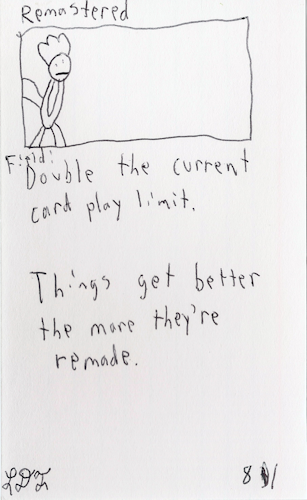 Remastered
Field:
Double the current
card play limit.
Things get better
the more they're
remade.
LDZ
8